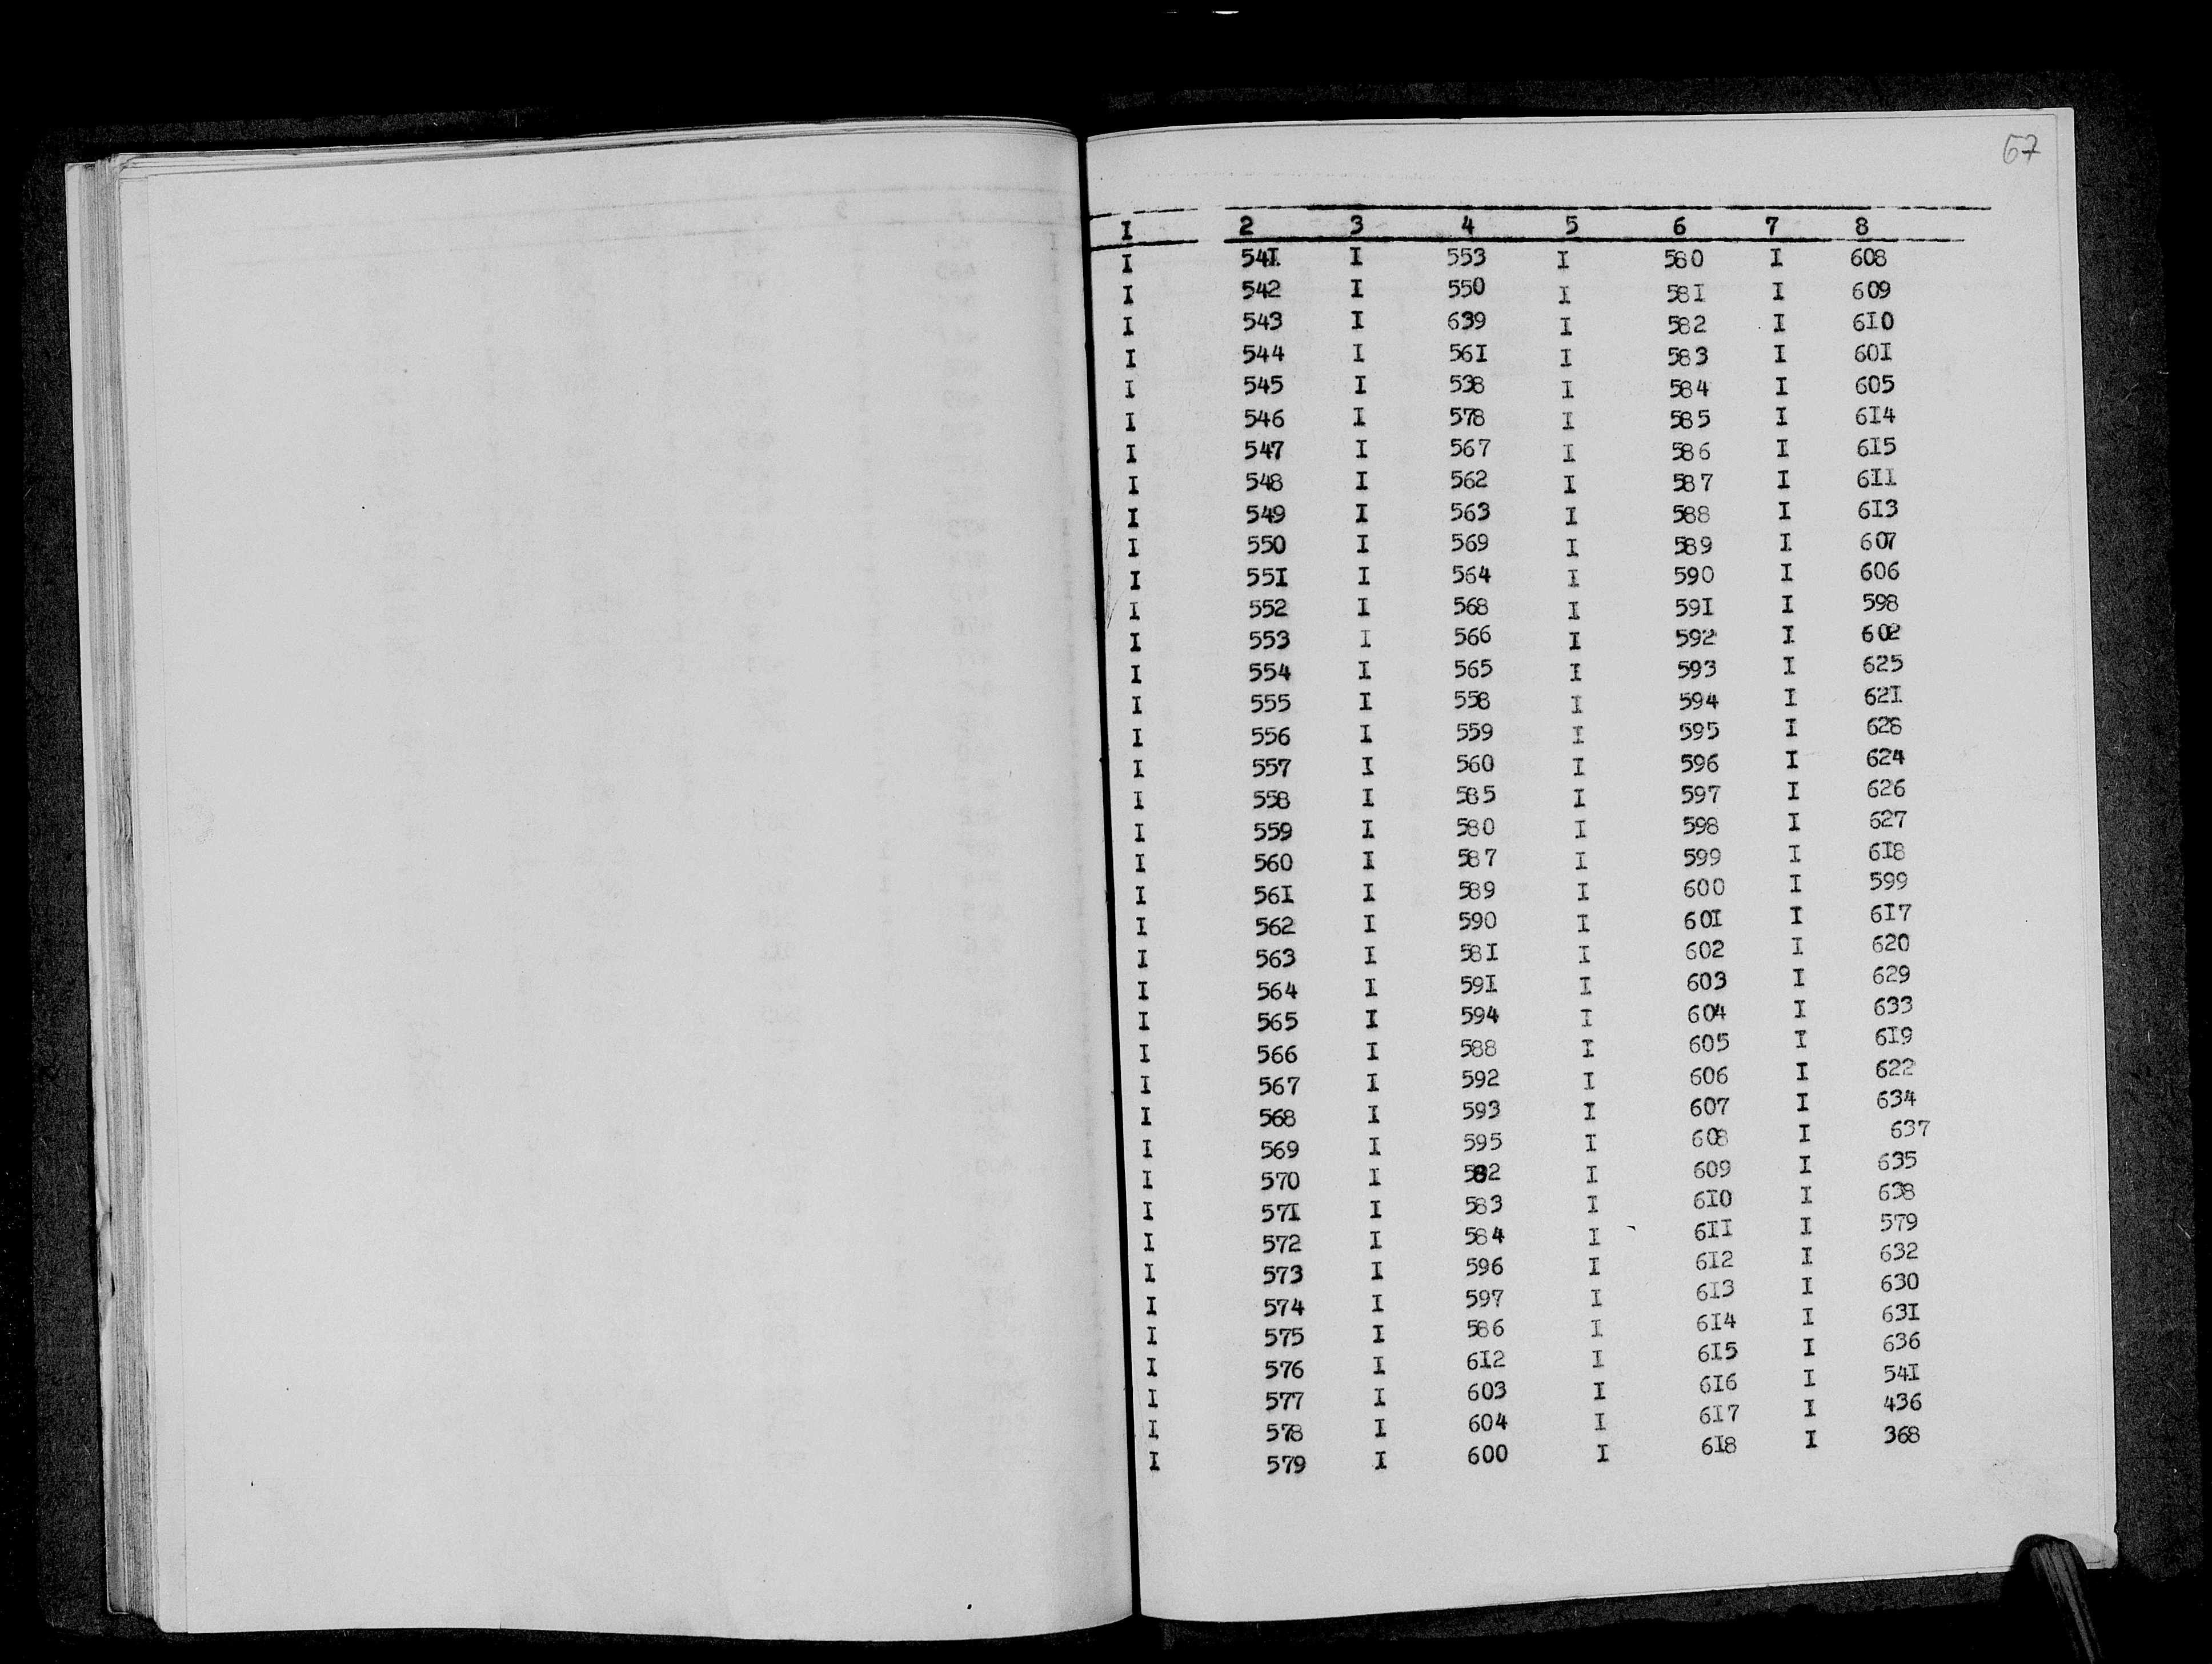 67
I 2 3 4 5 6 7 8
I 54I I 553 I 580 I 608
I 542 I 550 I 58I I 609
I 543 I 639 I 582 I 6I0
I 544 I 56I I 583 I 60I
I 545 I 538 I 584 I 605
I 546 I 578 I 585 I 6I4
I 547 I 567 I 586 I 6I5
I 548 I 562 I 587 I 6II
I 549 I 563 I 588 I 6I3
I 550 I 569 I 589 I 607
I 55I I 564 I 590 I 606
I 552 I 568 I 59I I 598
I 553 I 566 I 592 I 602
I 554 I 565 I 593 I 625
I 555 I 558 I 594 I 62I
I 556 I 559 I 595 I 628
I 557 I 560 I 596 I 624
I 558 I 585 I 597 I 626
I 559 I 580 I 598 I 627
I 560 I 587 I 599 I 6I8
I 56I I 589 I 600 I 599
I 562 I 590 I 60I I 6I7
I 563 I 58I I 602 I 620
I 564 I 59I I 603 I 629
I 565 I 594 I 604 I 633
I 566 I 588 I 605 I 6I9
I 567 I 592 I 606 I 622
I 568 I 593 I 607 I 634
I 569 I 595 I 608 I 637
I 570 I 582 I 609 I 635
I 57I I 583 I 6I0 I 638
I 572 I 584 I 6II I 579
I 573 I 596 I 6I2 I 632
I 574 I 597 I 6I3 I 630
I 575 I 586 I 6I4 I 63I
I 576 I 6I2 I 6I5 I 636
I 577 I 603 I 6I6 I 54I
I 578 I 604 I 6I7 I 436
I 579 I 600 I 6I8 I 368